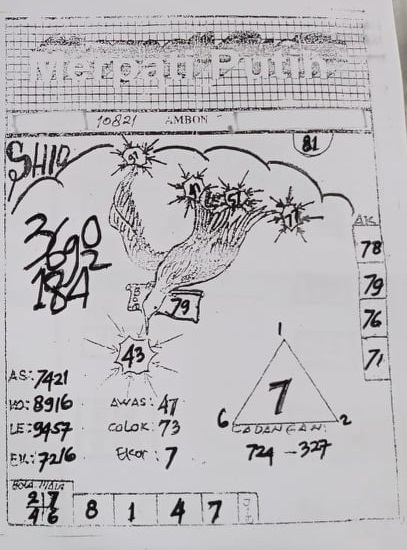 Merpati Putih
10821 AMBON
SHIO
81
3690
184
AK
78
79
76
71
79
43
1
7
6
2
CADANGAN:
724 - 327
AS: 7421
KO: 8916
LE: 9457
EK: 7216
AWAS: 47
COLOK: 73
Ekor: 7
27
46
8 1 4 7